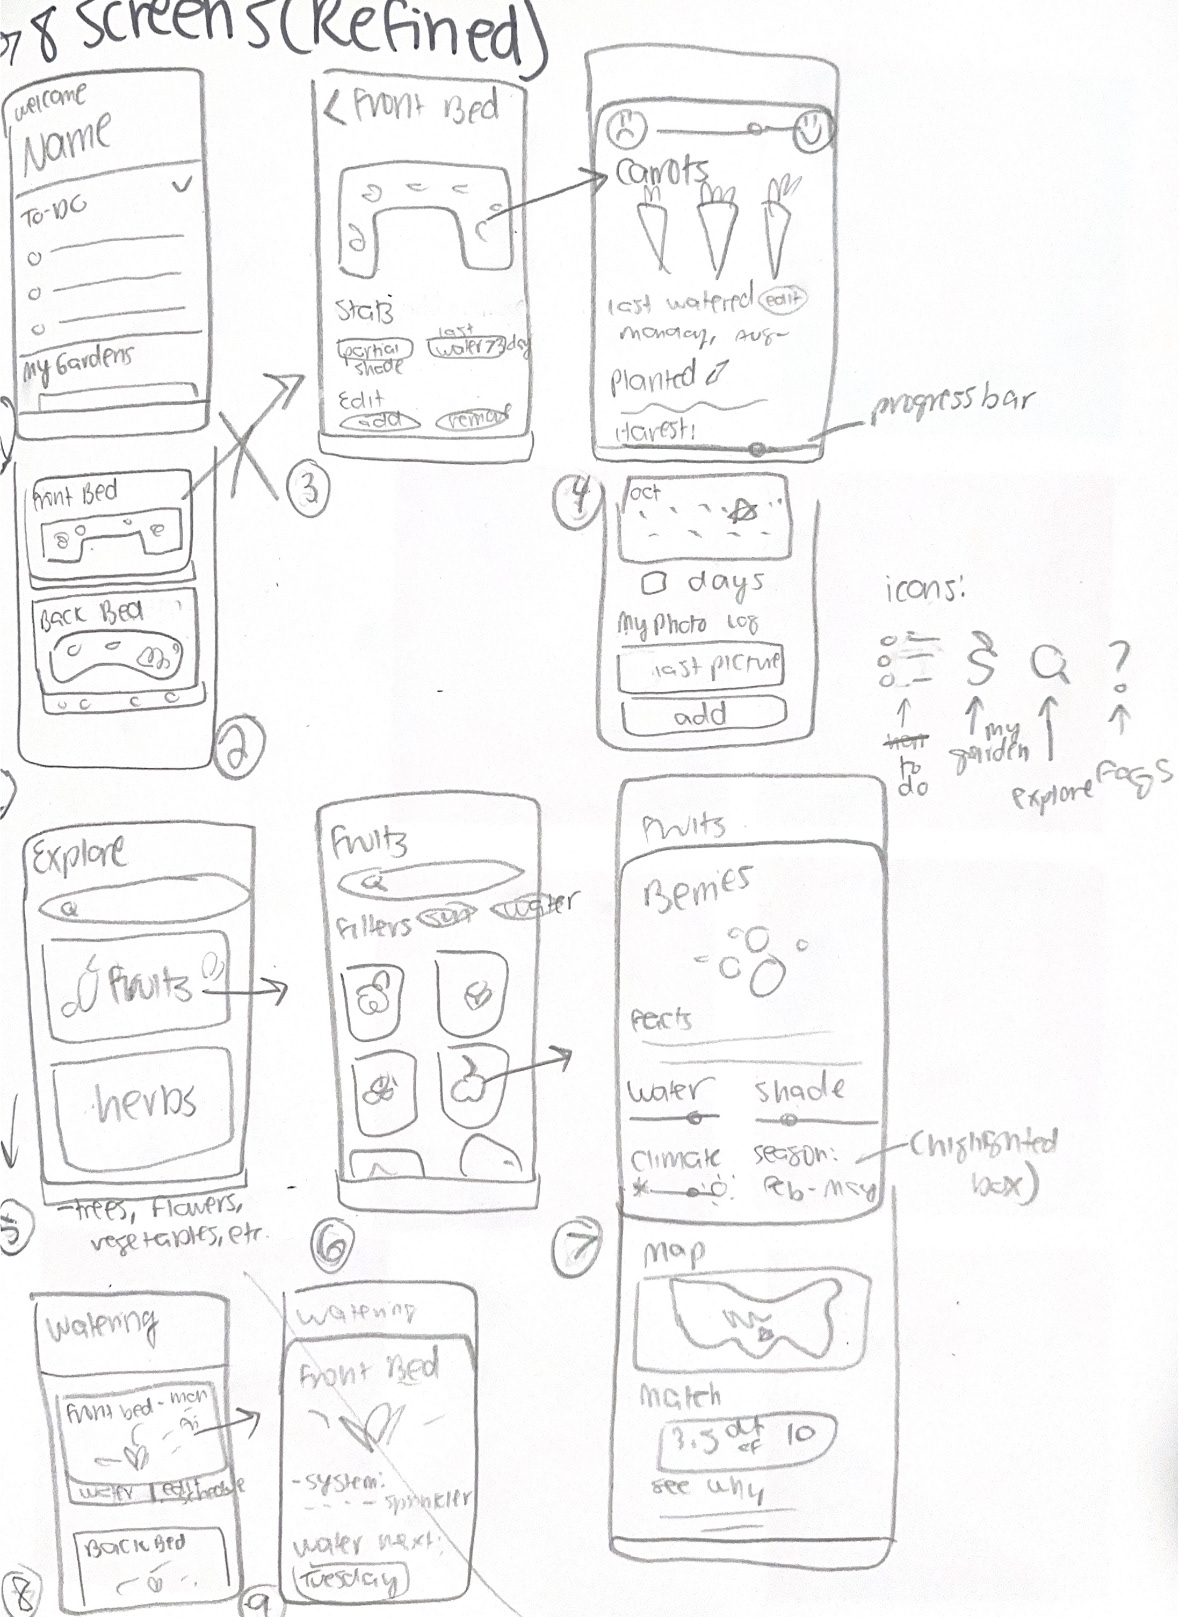 8 Screens (Refined)
welcome
Name
To-DO
My Gardens
Front Bed
Back Bed
2
< Front Bed
Stats
partial shade
last water 73 day
Edit
add
remove
3
Carrots
last watered edit
monday, Aug-
Planted
Harest:
progress bar
4
oct
days
My Photo Log
last picture
add
icons:
to do
my garden
explore
Faqs
?
Explore
Fruits
herbs
-trees, Flowers,
vegetables, etc.
5
Fruits
Filters sun water
6
Fruits
Berries
Facts
water shade
climate season:
Feb-May
(highlighted box)
7
Map
Match
3.5 out of 10
see why
Watering
Front bed - mon
water edit schedule
Back Bed
8
Watering
Front Bed
-system:
---- sprinkler
water next:
Tuesday
9